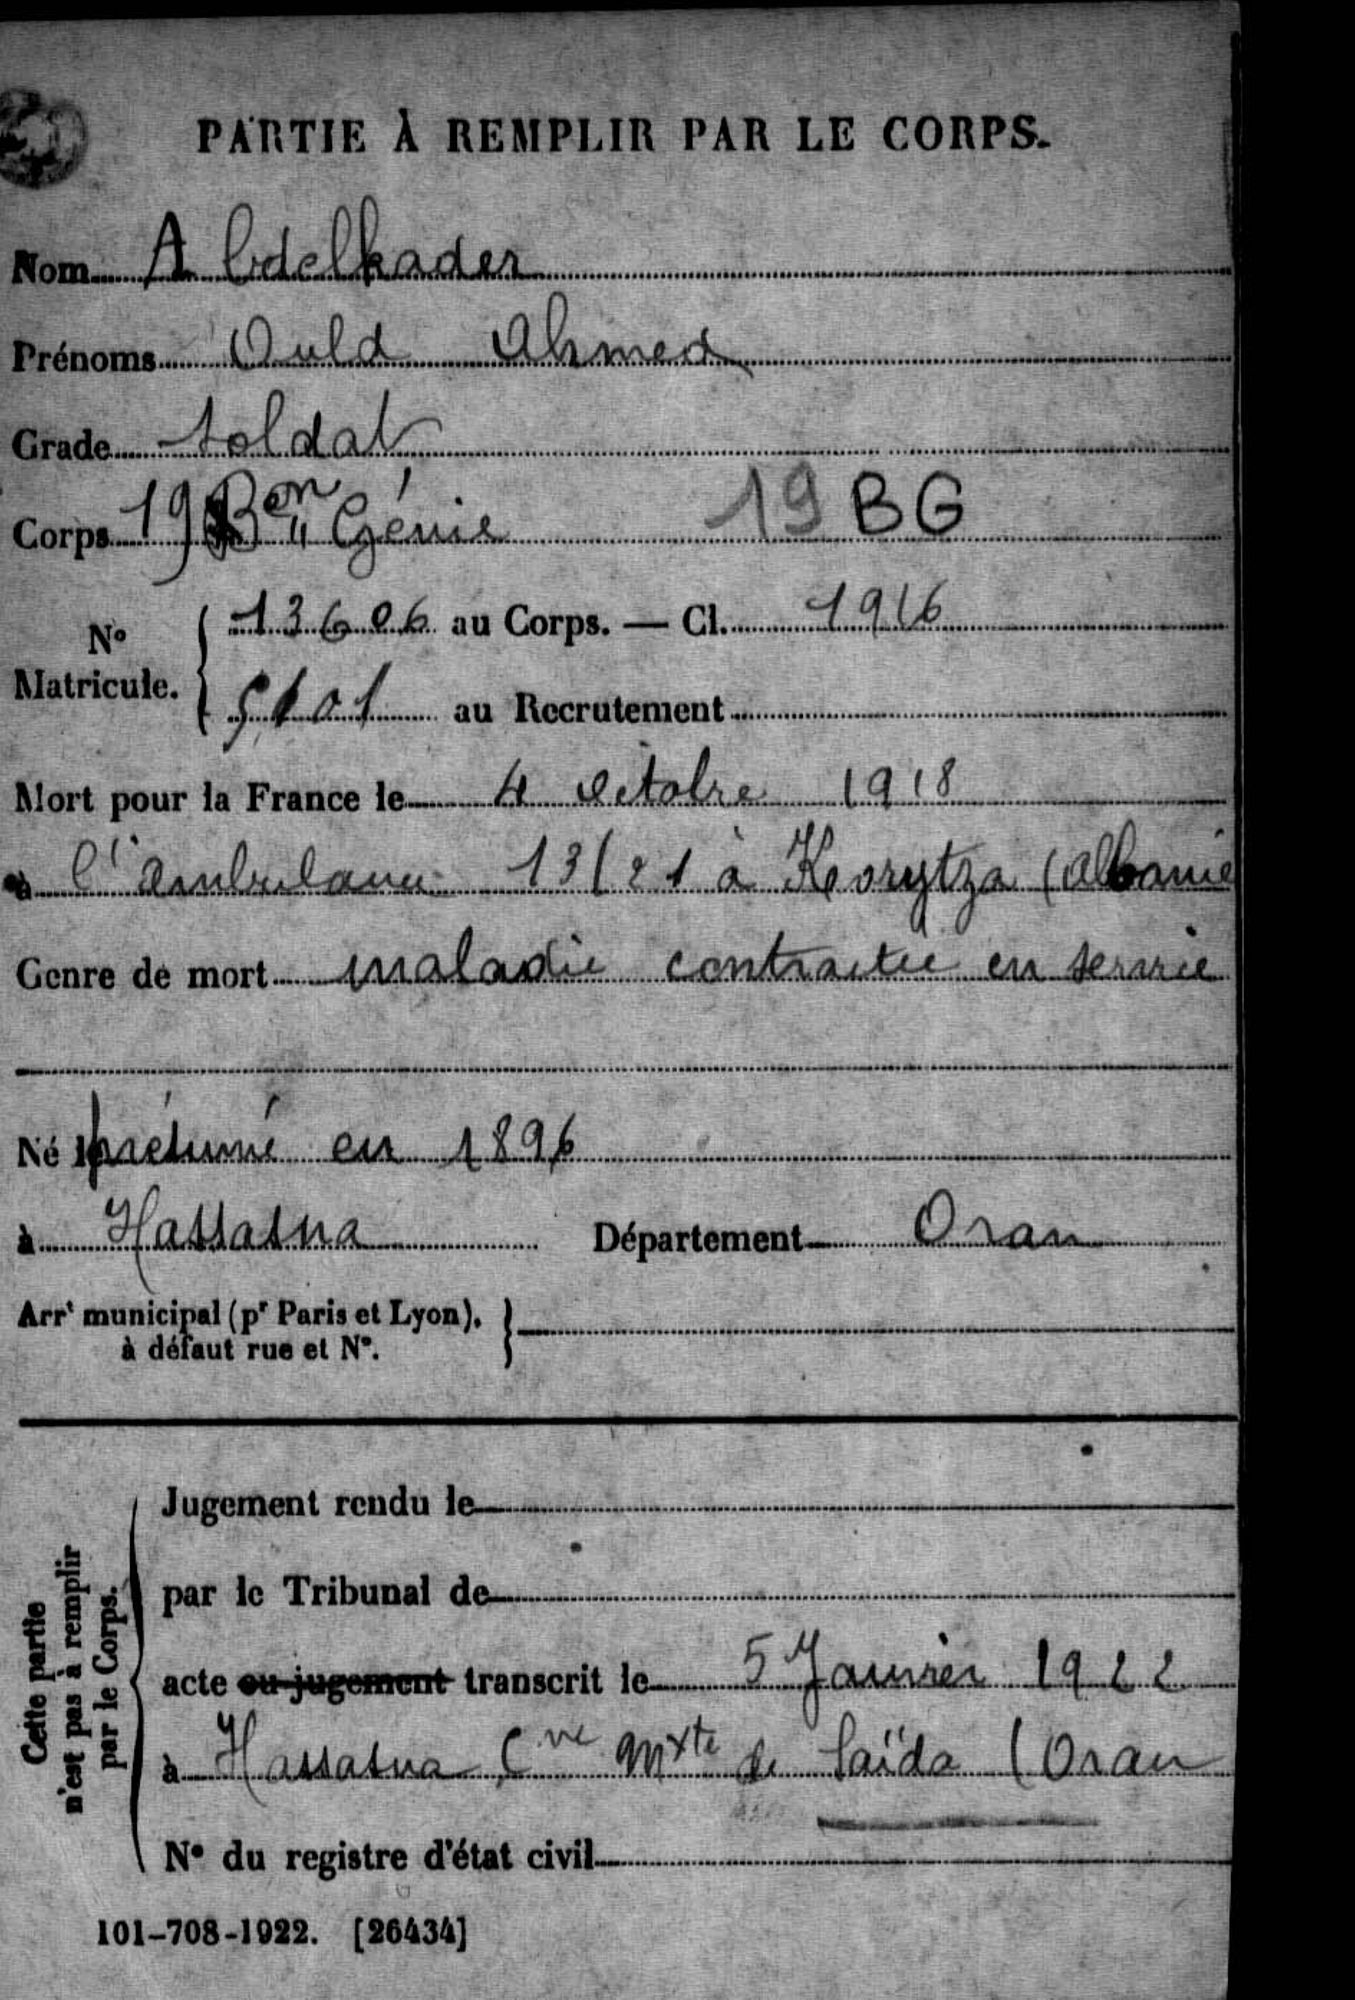 PARTIE À REMPLIR PAR LE CORPS.
Nom Abdelkader
Prénoms Ould Ahmed
Grade soldat
Corps 19 Bon Génie 19 BG
N° Matricule. 13606 au Corps. — Cl. 1916
5101 au Recrutement
Mort pour la France le 4 octobre 1918
à l'ambulance 13/21 à Korytza (Albanie
Genre de mort maladie contractée en service
Né le présumé en 1896
à Hassasna Département Oran
Arrt municipal (pr Paris et Lyon),
à défaut rue et N°.
Cette partie n'est pas à remplir par le Corps.
Jugement rendu le
par le Tribunal de
acte ou jugement transcrit le 5 Janvier 1922
à Hassasna Cne Mxte de Saïda (Oran
N° du registre d'état civil
101-708-1922. [26434]